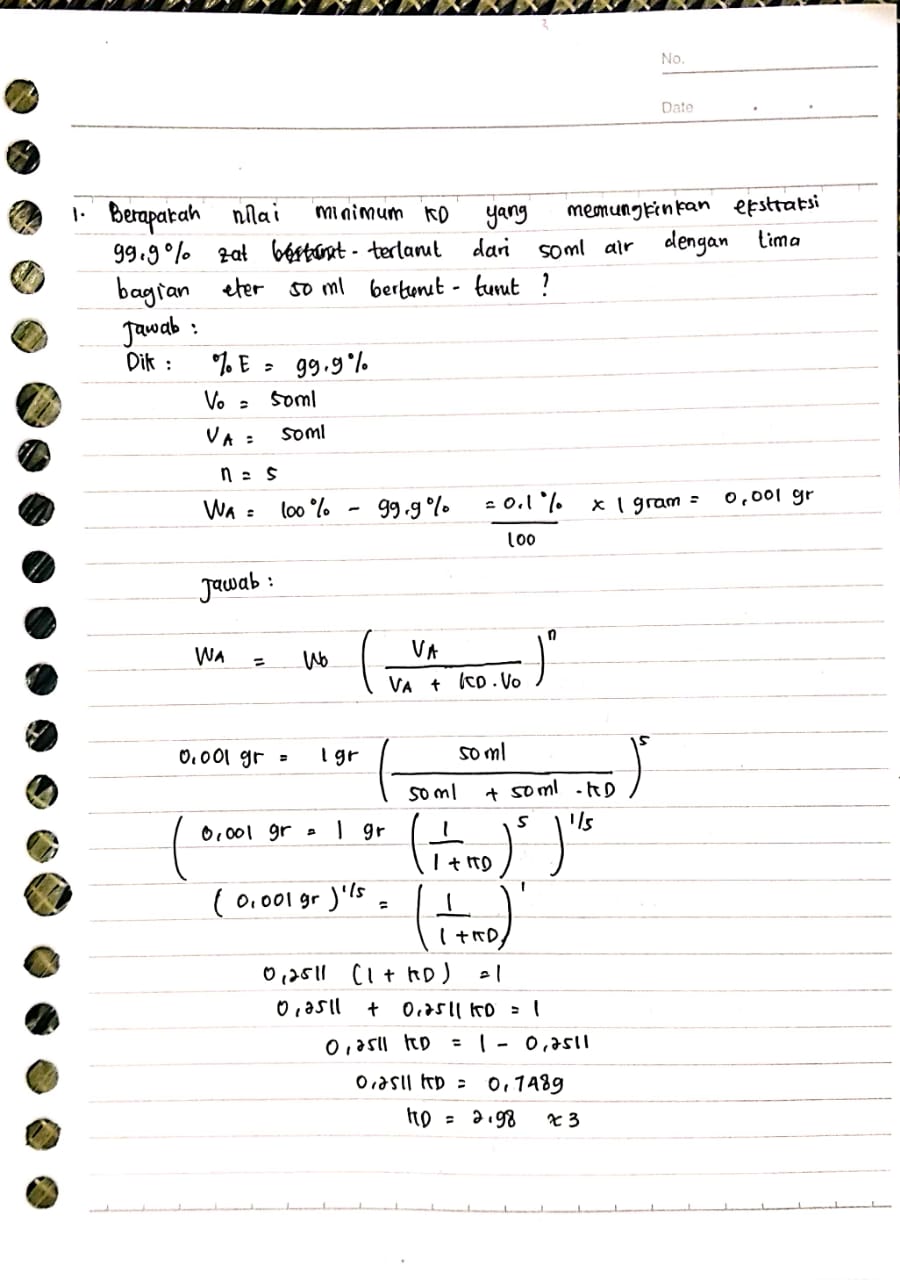 No.
Date
1. Berapakah nilai minimum KD yang memungkinkan ekstraksi
99,9% zat terlarut dari 50ml air dengan lima
bagian eter 50 ml berturut - turut ?
Jawab :
Dik : % E = 99,9%
Vo = 50ml
VA = 50ml
n = 5
WA = 100% - 99,9% = 0.1% / 100 x 1 gram = 0,001 gr
Jawab :
WA = Wo ( VA / VA + KD . Vo )^n
0,001 gr = 1 gr ( 50 ml / 50 ml + 50 ml . KD )^5
( 0,001 gr = 1 gr ( 1 / 1 + KD )^5 )^1/5
( 0,001 gr )^1/5 = ( 1 / 1 + KD )^1
0,2511 (1 + KD) = 1
0,2511 + 0,2511 KD = 1
0,2511 KD = 1 - 0,2511
0,2511 KD = 0,7489
KD = 2,98 ≈ 3